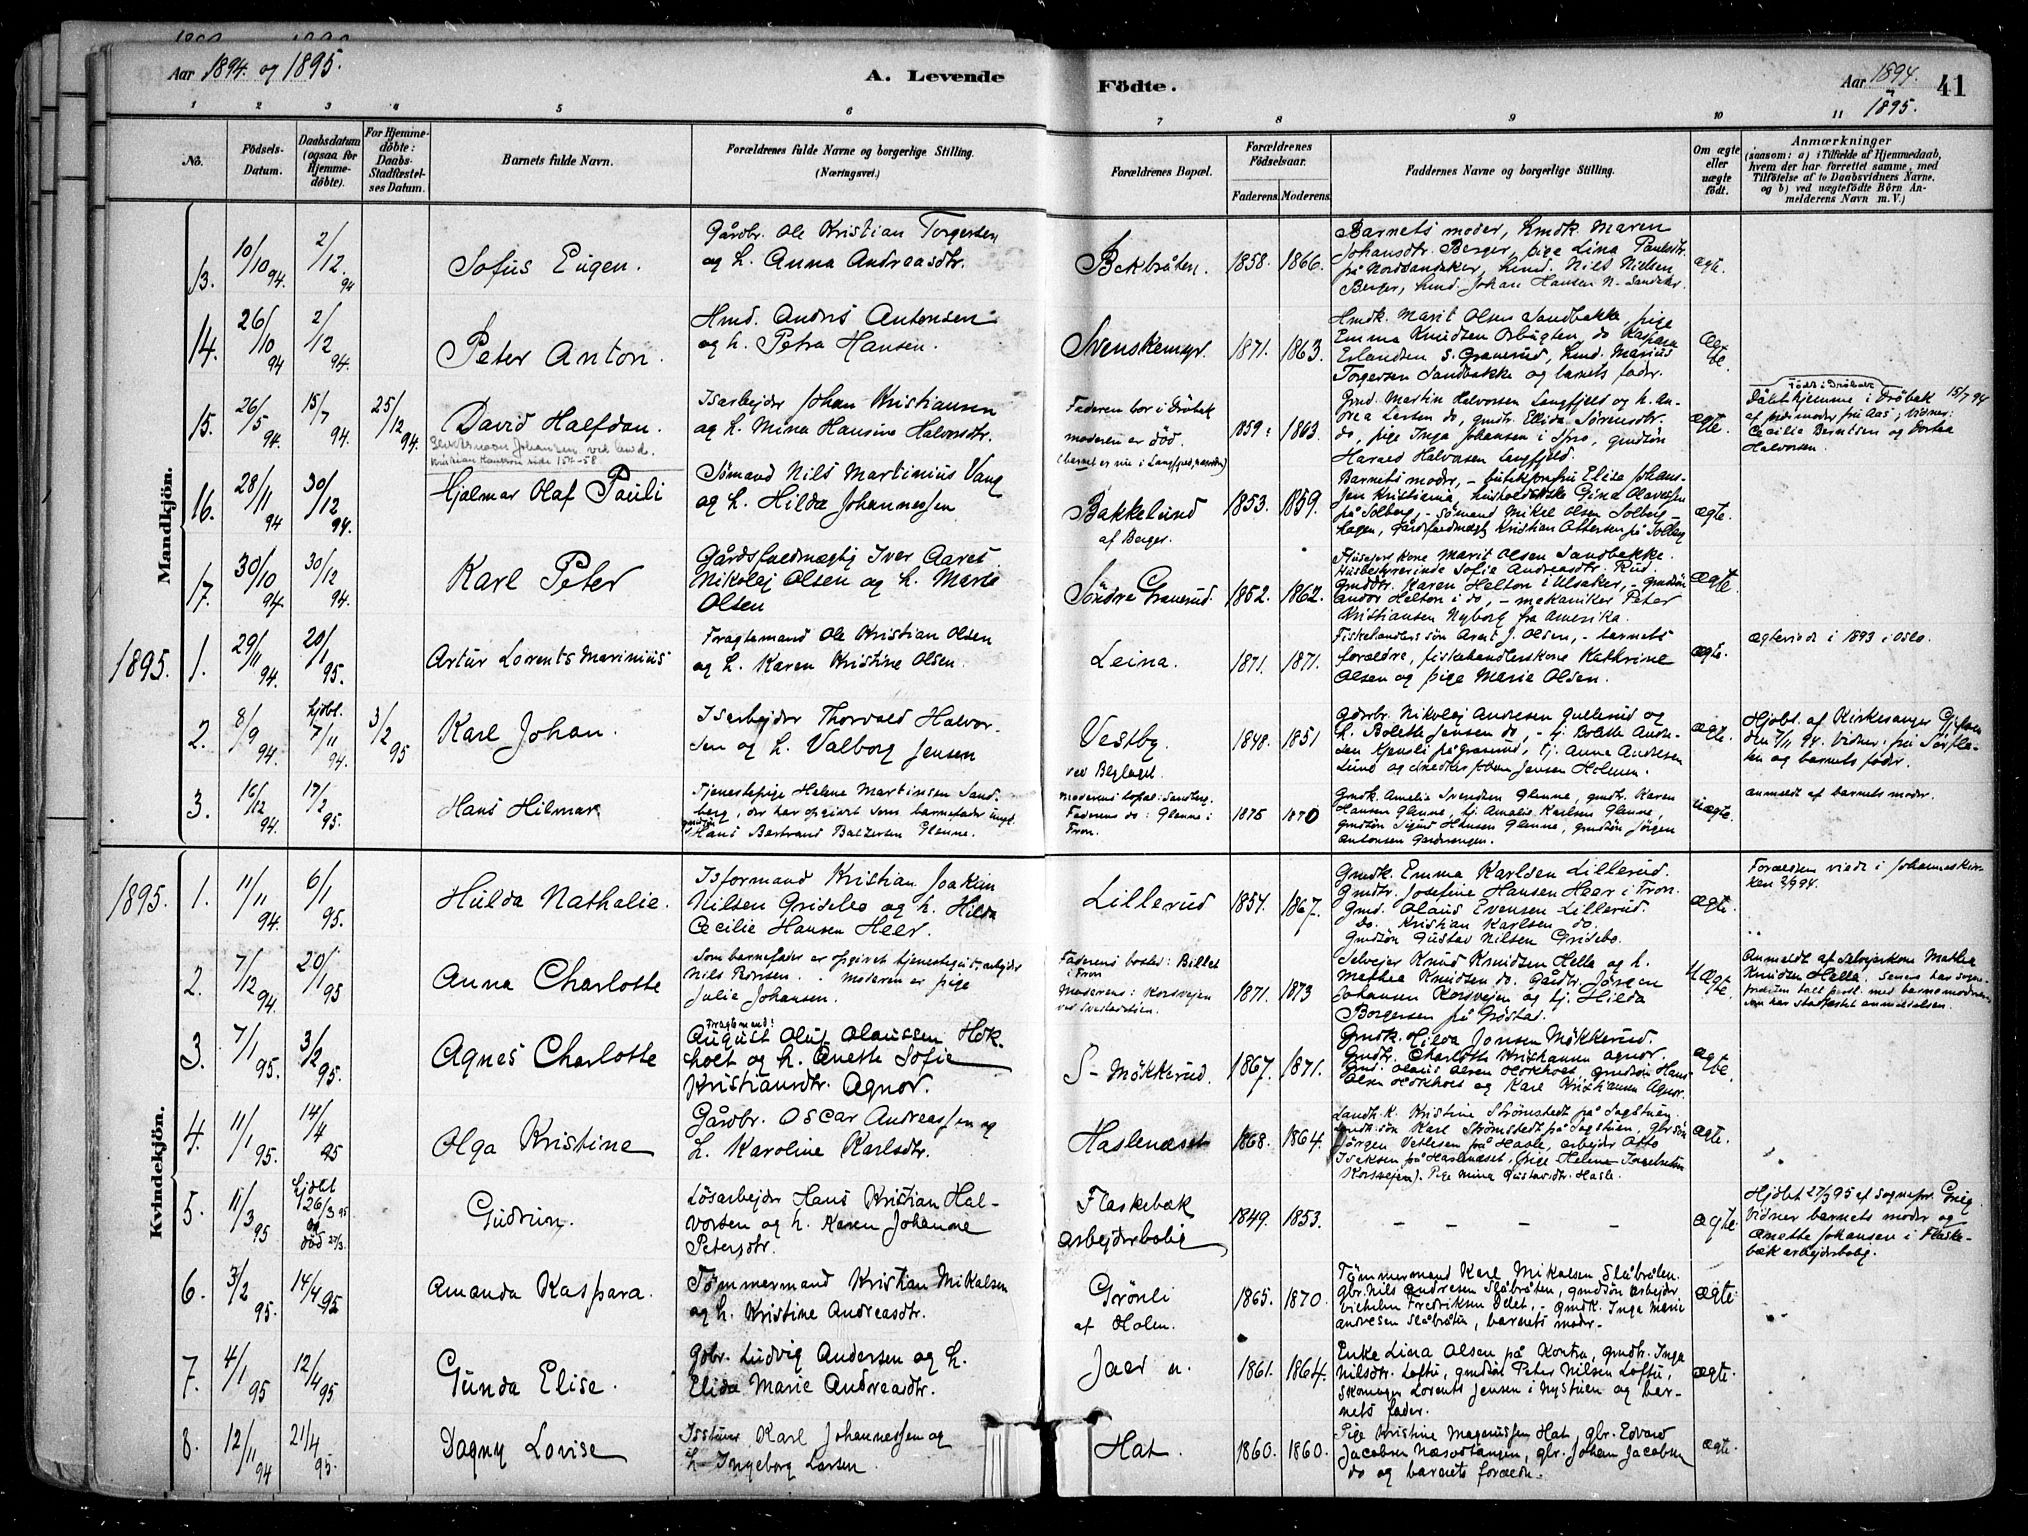 Aar 1894. og 1895.
A. Levende
Födte.
Aar 1894.
1895.
41
1 2 3 4 5 6 7 8 9 10 11
No.
Födsels-
Datum.
Daabsdatum
(ogsaa for
Hjemme-
döbte).
For Hjemme-
döbte:
Daabs-
Stadfæstel-
ses Datum.
Barnets fulde Navn.
Forældrenes fulde Navne og borgerlige Stilling.
(Næringsvei.)
Forældrenes Bopæl.
Forældrenes
Födselsaar.
Faderens.
Moderens.
Faddernes Navne og borgerlige Stilling.
Om ægte
eller
uægte
födt.
Anmærkninger
(saasom: a) i Tilfælde af Hjemmedaab,
hvem der har forrettet samme, med
Tilföielse af to Daabsvidners Navne,
og b) ved uægtefödte Börn An-
melderens Navn m. V.)
Mandkjön.
13.
10/10 94.
2/12 94
Sofus Eugen.
Gårdbr. Ole Kristian Torgersen
og h. Anna Andreasdtr.
Bekbråten.
1858.
1866.
Barnets moder, hmdk. Maren
Johansdtr. Berger, pige Lina Paulsdtr.
på Nordsandaker, hmd. Nils Nielsen
Berger, hmd. Johan Hansen N. Sandaker.
ægte.
14.
26/10 94
2/12 94.
Peter Anton.
Hmd. Andris Antonsen
og h. Petra Hansen.
Svenskemyr.
1871.
1863.
Hmdk. Marit Olsen Sandbakke, pige
Emma Knudsen Orbugten, do Kaspara
Erlandsen s. Graverud, hmd. Marius
Torgersen Sandbakke og barnets fader.
æg-
te.
15.
26/5 94.
15/7 94.
25/12 94.
David Halfdan.
Isarbejder Johan Kristiansen
og h. Mina Hansine Halvorsdtr.
Faderen bor i Dröbak
moderen er död.
1859.
1863.
Gmd. Martin Halvorsen Langfjeld og h. An-
drea Larsen do, gmdtr. Elida Sörensdtr.
do, pige Inga Johansen i Spro, gmdsön
Harald Halvorsen Langfjeld.
ægte.
Födt i Dröbak
Dåbt hjemme i Dröbak 15/7 94
af jordmoder fru Aas; vidner:
Cecilie Berntsen og Dorthea
Halvorsen.
16.
28/11 94
30/12 94.
Hjalmar Olaf Pauli
Sömand Nils Martinius Vang
og h. Hilda Johannessen
Bakkelund
af Berger.
1853.
1859.
Barnets moder, - butikjomfru Elise Johan-
sen Kristiania, husholderske Gina Olavesen
på Solberg, - sömand Mikal Olsen Solberg-
hagen, Gårdsfuldmægt. Kristian Ottersen på Solberg
ægte.
17.
30/10 94.
30/12 94.
Karl Peter
Gårdsfuldmægtig Iver Aares
Nikolaj Olsen og h. Marie
Olsen
Söndre Graverud.
1852.
1862.
Husejerskone Marit Olsen Sandbakke.
Husbestyrerinde Sofie Andreasdtr. Rud.
Gmddtr. Karen Helton i Ulsaker, - gmdsön
Andor Helton i do, - mekaniker Peter
Kristiansen Nyborg fra Amerika.
ægte.
1895.
1.
29/11 94.
20/1 95.
Artur Lorents Marinius
Fragtemand Ole Kristian Olsen
og h. Karen Kristine Olsen.
Leina.
1871.
1871.
Fiskehandlers sön Arent J. Olsen, - barnets
forældre, fiskehandlerskone Kathrine
Olsen og pige Marie Olsen.
ægte.
ægteviede i 1893 i Oslo.
2.
8/9 94.
hjdbt.
7/11 94.
3/2 95
Karl Johan.
Isarbejder Thorvald Halvor-
sen og h. Valborg Jensen
Vestby
1848.
1851
Gårdbr. Nikolaj Andresen Gullerud og
h. Bolette Jensen do, - tj. Bolette Andre-
sen, tj. Anna Andresen
Lund og snedker Johan Jensen Holmen.
ægte.
Hjdbt. af Kirkesanger
den 7/11 94. Vidner: fru
og barnets fader.
3.
16/12 94.
17/2 95.
Hans Hilmar
Tjenestepige Helene Martinsen Sand-
berg, der har opgivet som barnefader ungk.
gmdsön
Hans Bertrand Baltzersen Glenne.
Moderens bopæl: Sandberg.
Faderens do: Glenne i
Fron.
1875
1870
Gmdk. Amalie Svendsen Glenne, gmdtr. Karen
Hansen Glenne, tj. Amalie Karlsen Glenne,
gmdsön Sigurd Hansen Glenne, gmdsön Jörgen
Antonsen Gardvangen.
uægte.
anmeldt af barnets moder.
Kvindekjön.
1895.
1.
11/11 94.
6/1 95.
Hulda Nathalie.
Isformand Kristian Joakim
Nilsen Grisebo og h. Hilda
Cecilie Hansen Heer.
Lillerud
1854.
1867.
Gmdk. Emma Karlsen Lillerud.
Gmdtr. Josefine Hansen Heer i Fron.
Gmd. Olaus Evensen Lillerud.
Do. Kristian Karlsen do.
Gmdsön Gustav Nilsen Grisebo.
ægte.
Forældren viede i Johanneskir-
ken 2/9 94.
2.
7/12 94.
20/1 95
Anna Charlotte
Som barnefader er opgivet tjenestegut, arbejder
Nils Rörsen. Moderen er pige
Julie Johansen.
Faderens bosted: Billet
i Fron
Moderens: Korsvejen
1871.
1873
Selvejer Knud Knudsen Hella og h.
Mathea Knudsen do. Gårdbr. Jörgen
Johansen Korsvejen og tj. Hilda
Borgersen på Gröstad.
uægte.
Anmeldt af Selvejerkone Mathea
Knudsen Hella, senere har sogne-
præsten talt personl. med barnemoderen,
som har stadfæstet anmeldelsen.
3.
7/1 95.
3/2 95.
Agnes Charlotte
Fragtemand:
August Oluf Olaussen Hok-
holt og h. Anette Sofie
Kristiansdtr. Agnor.
S- Mökkerud.
1867.
1871.
Gmdk. Hilda Jonsen Mökkerud.
Gmdtr. Charlotte Kristiansen Agnor.
Gmd. Olaus Olsen Hokholt, gmdsön Hans
Olsen Hokholt og Karl Kristiansen Agnor.
ægte.
4.
11/1 95.
14/4 95
Olga Kristine
Gårdbr. Oscar Andreassen og
h. Karoline Karlsdtr.
Haslenæset
1868.
1864.
Landh.k. Kristine Strömstedt på Sagstuen,
Landh. sön Karl Strömstedt på Sagstuen, gbr. sön
Jörgen Vetlesen på Hasle, arbejder Otto
Isaksen på Haslenæset, (pige Helene
Korsvejen). Pige Mina Gustavdtr. Hasle.
ægte.
5.
11/3 95
hjdbt
26/3 95
död 27/3.
Gudrun.
Lösarbejder Hans Kristian Hal-
vorsen og h. Karen Johanne
Petersdtr.
Flaskebæk
arbejderbolig
1849.
1853.
- - - -
ægte
Hjdbt 27/3 95 af sognepr. Grieg
Vidner barnets moder og
Anette Johansen i Flaske-
bæk arbejderbolig.
6.
3/2 95.
14/4 95
Amanda Kaspara.
Tömmermand Kristian Mikalsen
og h. Kristine Andreasdtr.
Grönli
af Holen.
1865.
1870.
Tömmermand Karl Mikalsen Slåbråten.
gbr. Nils Andresen Slåbråten, gmdsön arbejder
Vilhelm Fredriksen Delet, - gmdk. Inga Marie
Andresen Slåbråten, barnets moder-
ægte.
7.
4/1 95
12/4 95
Gunda Elise.
Gbr. Ludvig Andersen og h.
Elida Marie Andreasdtr.
Jaer n.
1861.
1864.
Enke Lina Olsen på Kortra, gmdtr. Inga
Nilsdtr. Loftu, gmdsön Peter Nilsen Loftu,
Skomager Lorents Jensen i Nystuen og bar-
nets fader.
ægte.
8.
12/11 94
21/4 95.
Dagny Lovise
Karl Johannessen og
h- Ingeborg Larsen.
Hat.
1860.
1860.
Pige Kristine Magnussen Hat, gbr. Edvard
Jacobsen Næsoddtangen, gbr. Johan Jacobsen
do og barnets forældre.
ægte.